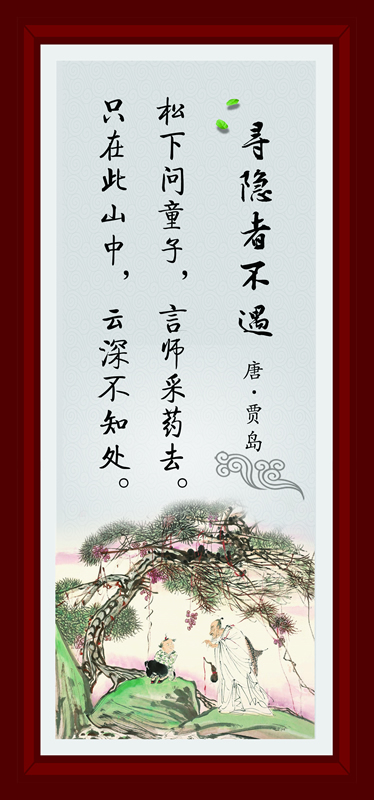 寻隐者不遇
唐·贾岛
松下问童子，言师采药去。
只在此山中，云深不知处。